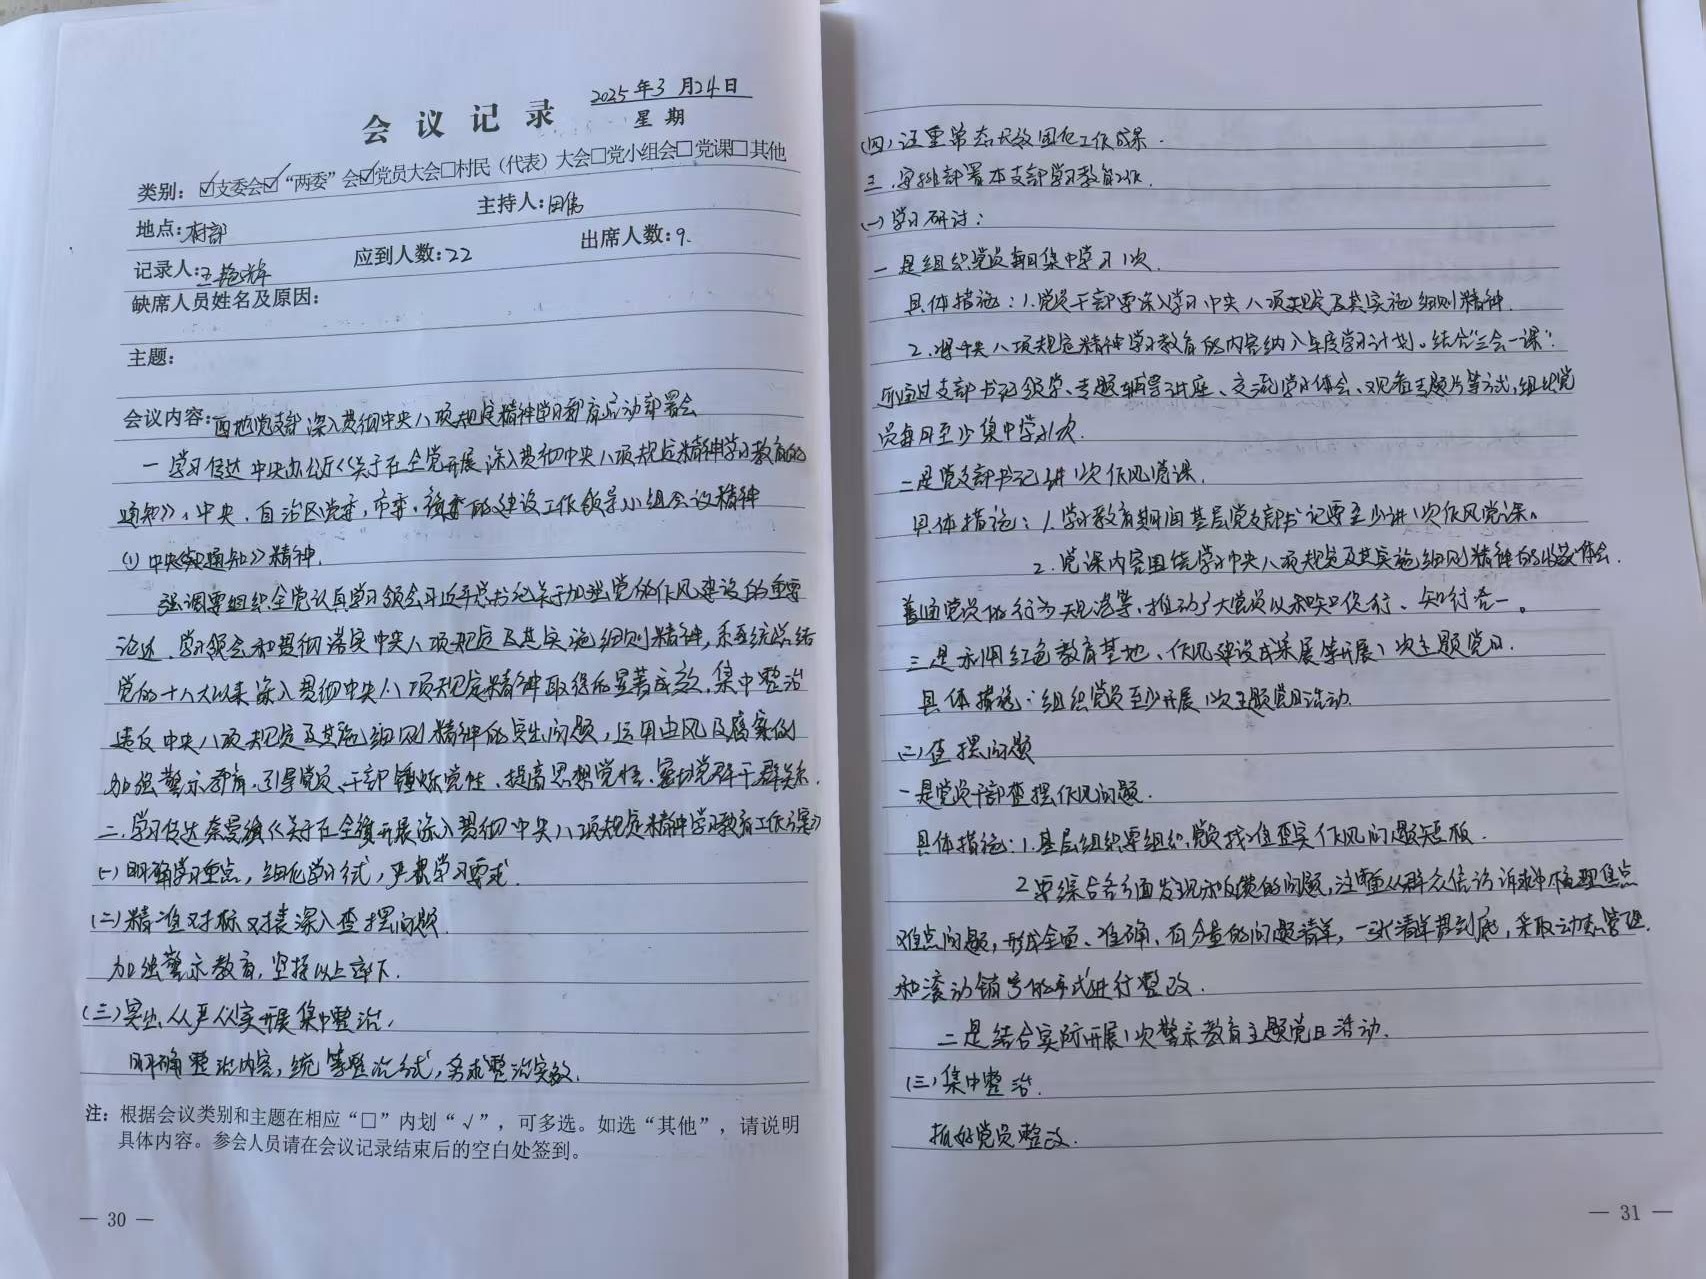 会议记录
2025年3月24日
星期
类别：☑支委会☑“两委”会☑党员大会□村民（代表）大会□党小组会□党课□其他
地点：村部
主持人：田伟
记录人：王艳辉
应到人数：22
出席人数：9.
缺席人员姓名及原因：
主题：
会议内容：西地党支部深入贯彻中央八项规定精神学习教育启动部署会
一 学习传达中央办公厅《关于在全党开展深入贯彻中央八项规定精神学习教育的
通知》，中央、自治区党委，市委、旗委的建设工作领导小组会议精神
(1) 中央《通知》精神.
强调要组织全党认真学习领会习近平总书记关于加强党的作风建设的重要
论述、学习领会和贯彻落实中央八项规定及其实施细则精神，系统总结
党的十八大以来深入贯彻中央八项规定精神取得的显著成效，集中整治
违反中央八项规定及其施细则精神的突出问题，运用由风及腐案例
加强警示教育，引导党员、干部锤炼党性、提高思想觉悟、密切党群干群关系.
二.学习传达奈曼旗《关于在全旗开展深入贯彻中央八项规定精神学习教育工作方案》
(一)明确学习重点，细化学习方式，严肃学习要求.
(二)精准对标对表深入查摆问题.
加强警示教育，坚持以上率下.
(三)突出从严从实开展集中整治，
明确整治内容，统筹整治方式，务求整治实效.
注：根据会议类别和主题在相应“□”内划“√”，可多选。如选“其他”，请说明
具体内容。参会人员请在会议记录结束后的空白处签到。
— 30 —
(四)注重常态长效固化工作成果.
三.安排部署本支部学习教育工作.
(一)学习研讨：
一是组织党员每月集中学习1次.
具体措施：1.党员干部要深入学习中央八项规定及其实施细则精神.
2.将中央八项规定精神学习教育的内容纳入年度学习计划。结合“三会一课”.
可通过支部书记领学、专题辅导讲座、交流学习体会、观看专题片等方式，组织党
员每月至少集中学习1次.
二是党支部书记讲1次作风党课.
具体措施：1.学习教育期间基层党支部书记要至少讲1次作风党课。
2.党课内容围绕学习中央八项规定及其实施细则精神的收获体会.
普通党员的行为规范等，推动广大党员以知促行、知行合一。
三是利用红色教育基地、作风建设成果展等开展1次主题党日.
具体措施：组织党员至少开展1次主题党日活动.
(二)查摆问题
一是党员干部查摆作风问题.
具体措施：1.基层组织要组织党员找准查实作风问题短板.
2 要综合各方面发现和反馈的问题，注重从群众信访诉求中梳理焦点
难点问题，形成全面、准确、有分量的问题清单，一张清单贯到底，采取动态管理.
和滚动销号的方式进行整改.
二是结合实际开展1次警示教育主题党日活动.
(三)集中整治.
抓好党员整改.
— 31 —